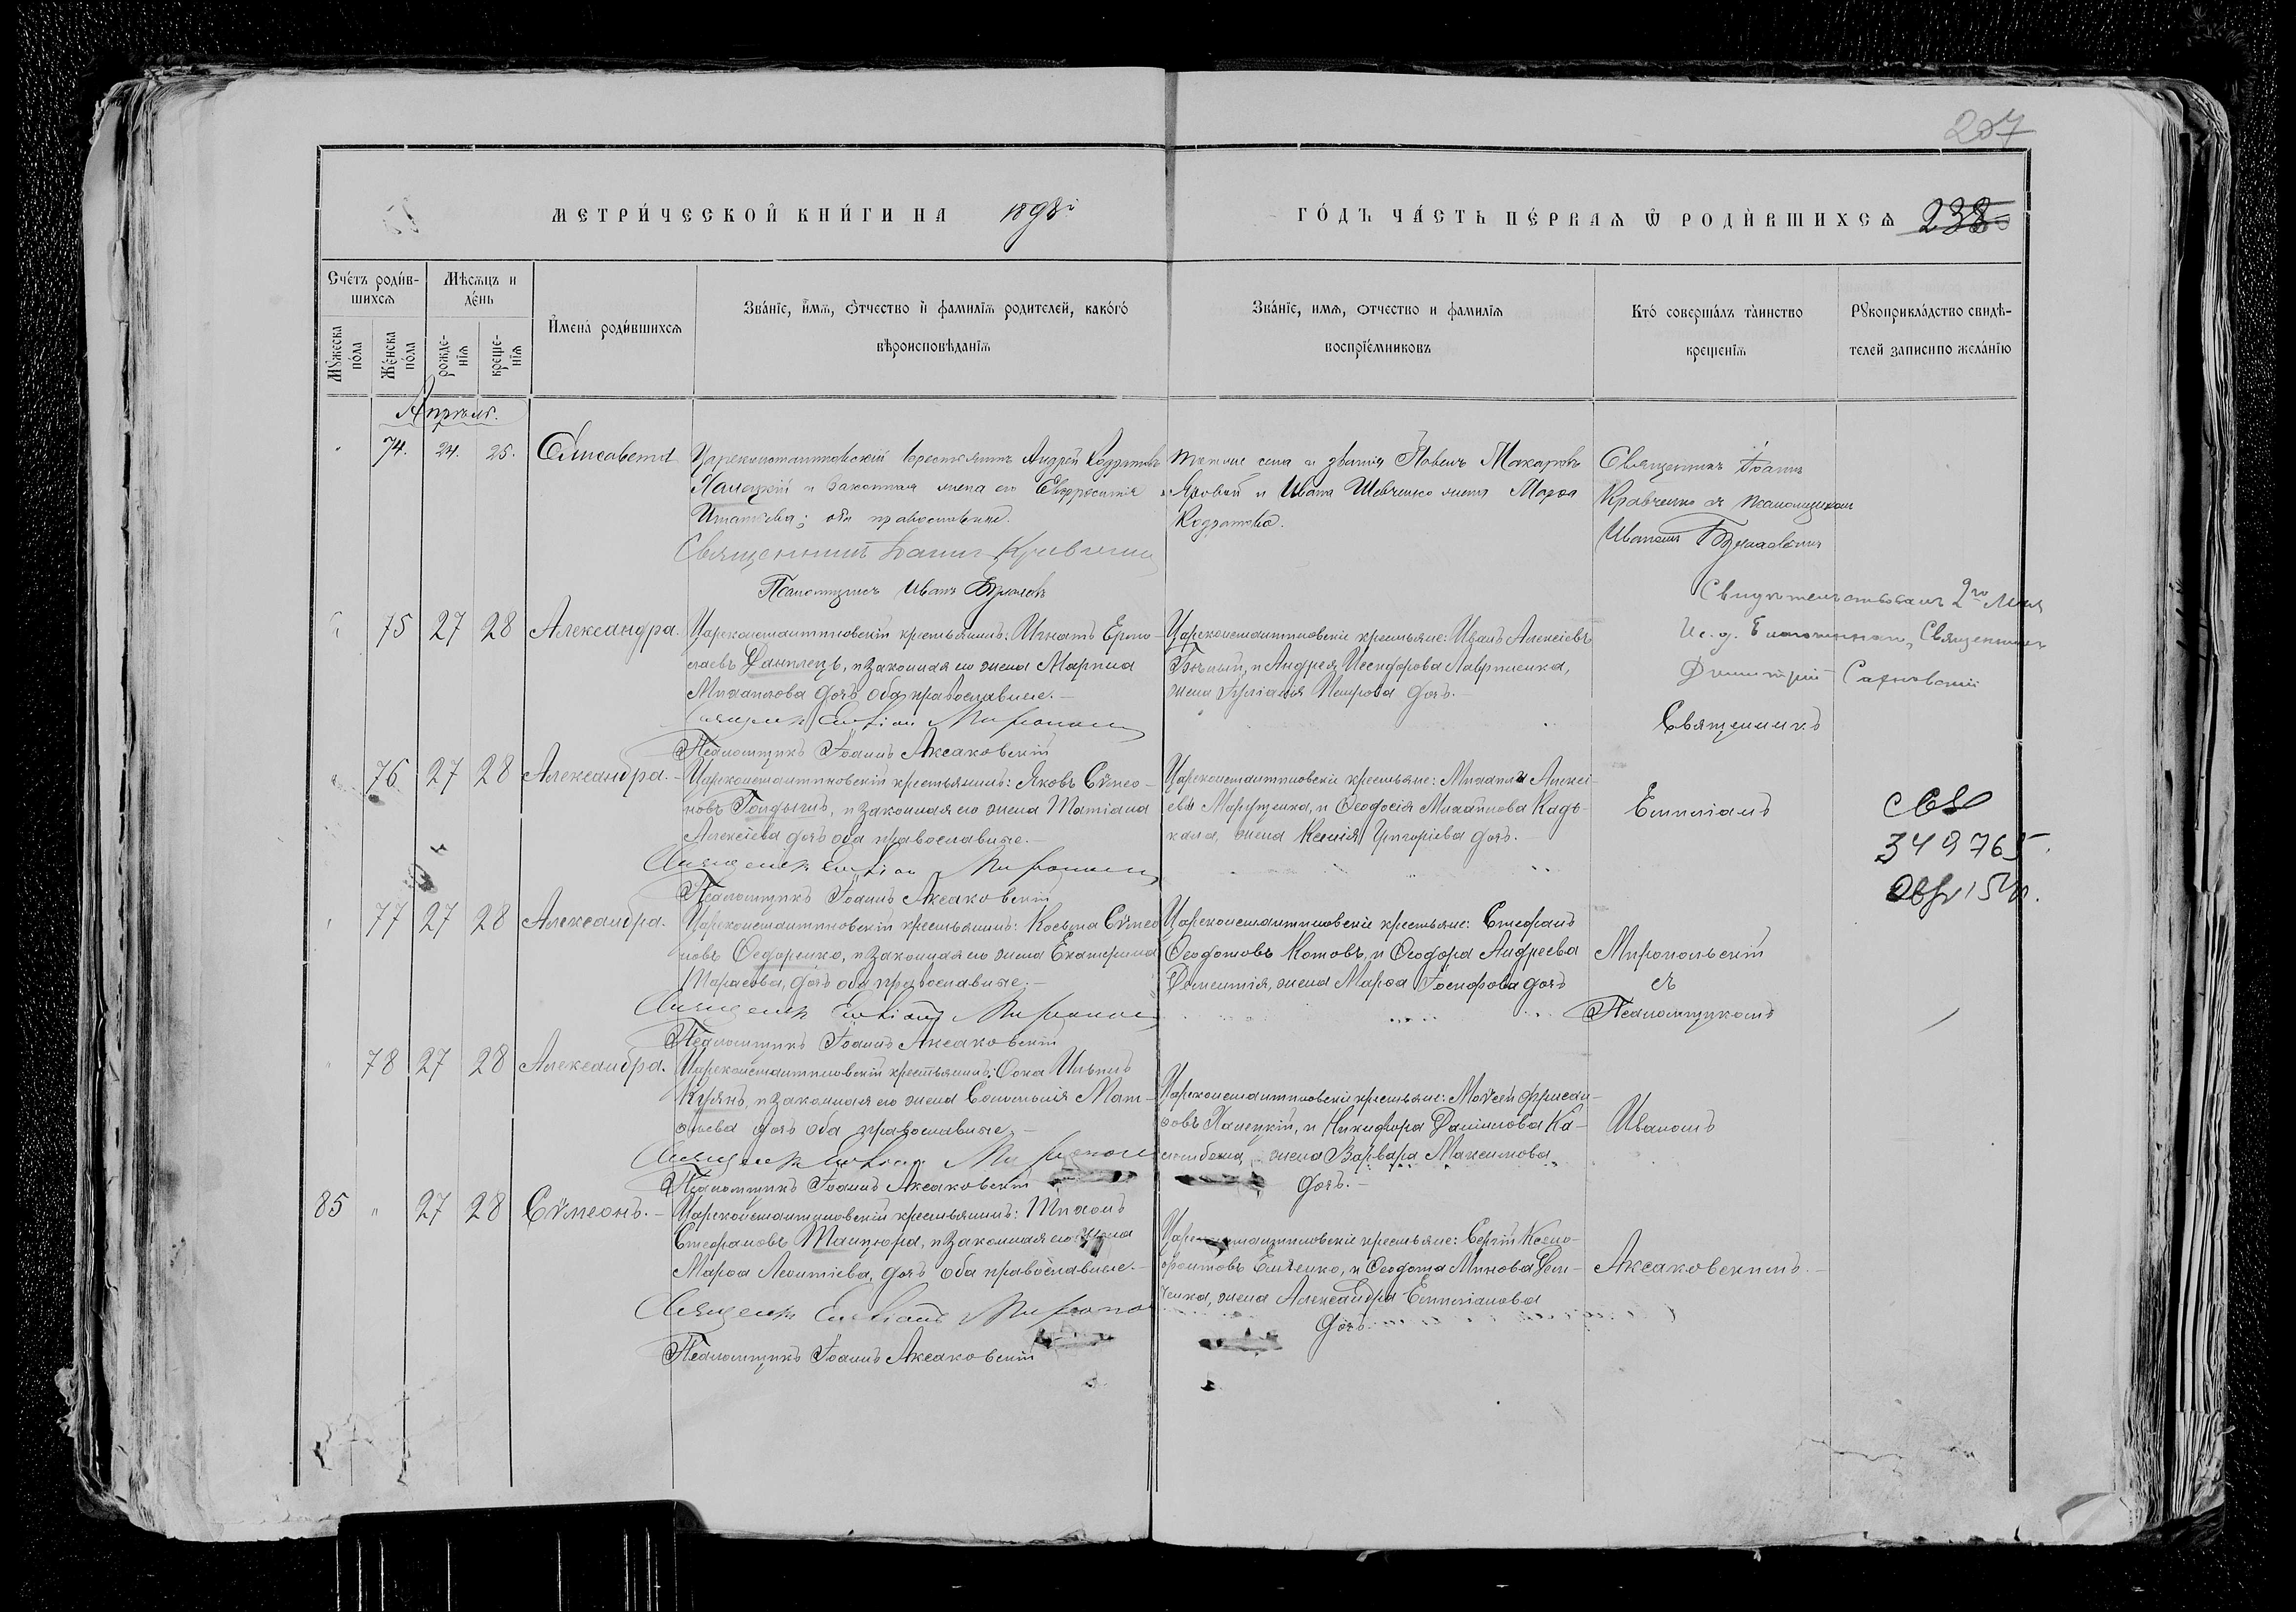 207
МЕТРИ́ЧЕСКОЙ КНИ́ГИ НА 1898й
ГО́ДЪ ЧА́СТЬ ПЕ́РВАѦ Ѿ РОДИ́ВШИХСѦ 238
Сче́тъ роди́в-
шихсѧ
Мѣ́сѧцъ и
де́нь
Мꙋ́жеска
по́ла
Же́нска
по́ла
рожде-
нїѧ
креще-
нїѧ
И҆мена̀ роди́вшихсѧ
Зва́нїе, и҆́мѧ, ѻ҆́тчество и҆ фамилїѧ родителей, како́гѡ
вѣроисповѣ́данїѧ
Зва́нїе, имѧ, отчество и фамилїѧ
воспрїе́мниковъ
Кто́ соверша́лъ та́инство
креще́нїѧ
Рꙋкоприкла́дство свидѣ-
телей записи по жела́нїю
Апрѣль.
" 74. 24. 25. Елисавета
Цареконстантиновскій крестьянинъ Андрей Кодратовъ
Палецкій и законная жена его Евфросинія
Игнатьева; оба православные.
Священникъ Іоаннъ Кравченко
Псаломщикъ Иванъ
тогоже села и званія Павелъ Макаровъ
Яровой и Ивана Шевченко жена Марѳа
Кодратова.
Священникъ Іоаннъ
Кравченко съ псаломщикомъ
Иваномъ
Свидѣтельствовалъ 2го Мая
Ис. д. Благочиннаго, Священникъ
Димитрій Сахновскій
" 75 27 28 Александра.
Цареконстантиновскій крестьянинъ: Игнатъ Ермо-
лаевъ Данилецъ, и законная его жена Марина
Михаилова дочь оба православные.-
Священникъ Емиліанъ Миропольск
Псаломщикъ Іоаннъ Аксаковскій
Цареконстантиновскіе крестьяне: Иванъ Алексіевъ
и Андрея Никифорова Лавриненка,
жена Іуліанія Петрова дочь.-
Священникъ
" 76 27 28 Александра.-
Цареконстантиновскій крестьянинъ: Яковъ Сѵмео-
новъ Гондыль, и законная его жена Татіана
Алексіева дочь оба православные.-
Священникъ Емиліанъ Миропольск
Псаломщикъ Іоаннъ Аксаковскій
Цареконстантиновскіе крестьяне: Михаилъ Алексі-
евъ Марущенко, и Ѳеодосія Михайлова Кадь-
кала, жена Ксенія Григоріева дочь.-
Емиліанъ
349765
" 77 27 28 Александра.
Цареконстантиновскій крестьянинъ: Косьма Сѵмео
новъ Ѳедоренко, и законная его жена Екатерина
Тарасова, дочь оба православные.-
Священникъ Емиліанъ Миропольск
Псаломщикъ Іоаннъ Аксаковскій
Цареконстантиновскіе крестьяне: Стефанъ
Ѳеодотовъ Котовъ, и Ѳеодора Андреева
Дементія, жена Марѳа Іосифова дочь
Миропольскій
съ
Псаломщикомъ
" 78 27 28 Александра.
Цареконстантиновскій крестьянинъ: Ѳома Ильинъ
Курянъ, и законная его жена Соломонія Мат-
ѳіева дочь оба православные.-
Священникъ Емиліанъ Миропольск
Псаломщикъ Іоаннъ Аксаковскій
Цареконстантиновскіе крестьяне: Моѵсей Хрисан-
ѳовъ Палецкій, и Никифора Даніилова Ка-
жена Варвара Максимова
дочь.-
Иваномъ
85 " 27 28 Сѵмеонъ.-
Цареконстантиновскій крестьянинъ: Тихонъ
Стефановъ Танцюра, и законная его жена
Марѳа Леонтіева, дочь оба православные.-
Священникъ Емиліанъ Миропол
Псаломщикъ Іоаннъ Аксаковскій
Цареконстантиновскіе крестьяне: Сергій Ксено-
фонтовъ и Ѳеодота Минова Дем-
ченка, жена Александра Емиліанова
дочь.
Аксаковскимъ.-